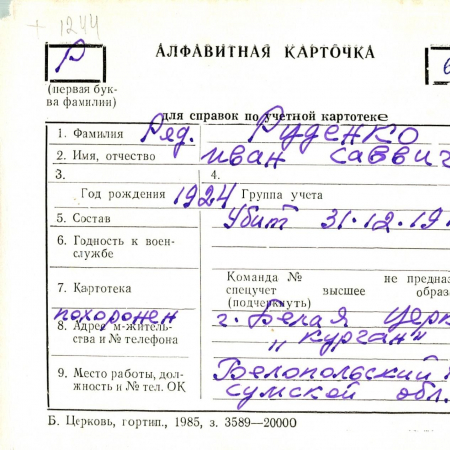 + 1244
Р
АЛФАВИТНАЯ КАРТОЧКА
(первая бук-
ва фамилии)
для справок по учетной картотеке
1. Фамилия Ряд. Руденко
2. Имя, отчество Иван Саввич
3. 4.
Год рождения 1924 Группа учета
5. Состав Убит 31.12.19
6. Годность к воен-
службе
Команда № не предназ
7. Картотека спецучет высшее образ
(подчеркнуть)
похоронен г. Белая Церк
8. Адрес м-житель-
ства и № телефона „Курган"
9. Место работы, дол-
жность и № тел. ОК
Белопольский
Сумской обл.
Б. Церковь, гортип., 1985, з. 3589—20000